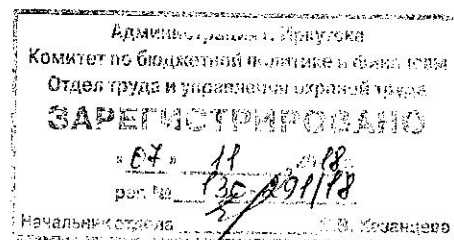 Администрация г. Иркутска
Комитет по бюджетной политике и финансам
Отдел труда и управления охраной труда
ЗАРЕГИСТРИРОВАНО
« 07 » 11 2018
рег. №
Начальник отдела